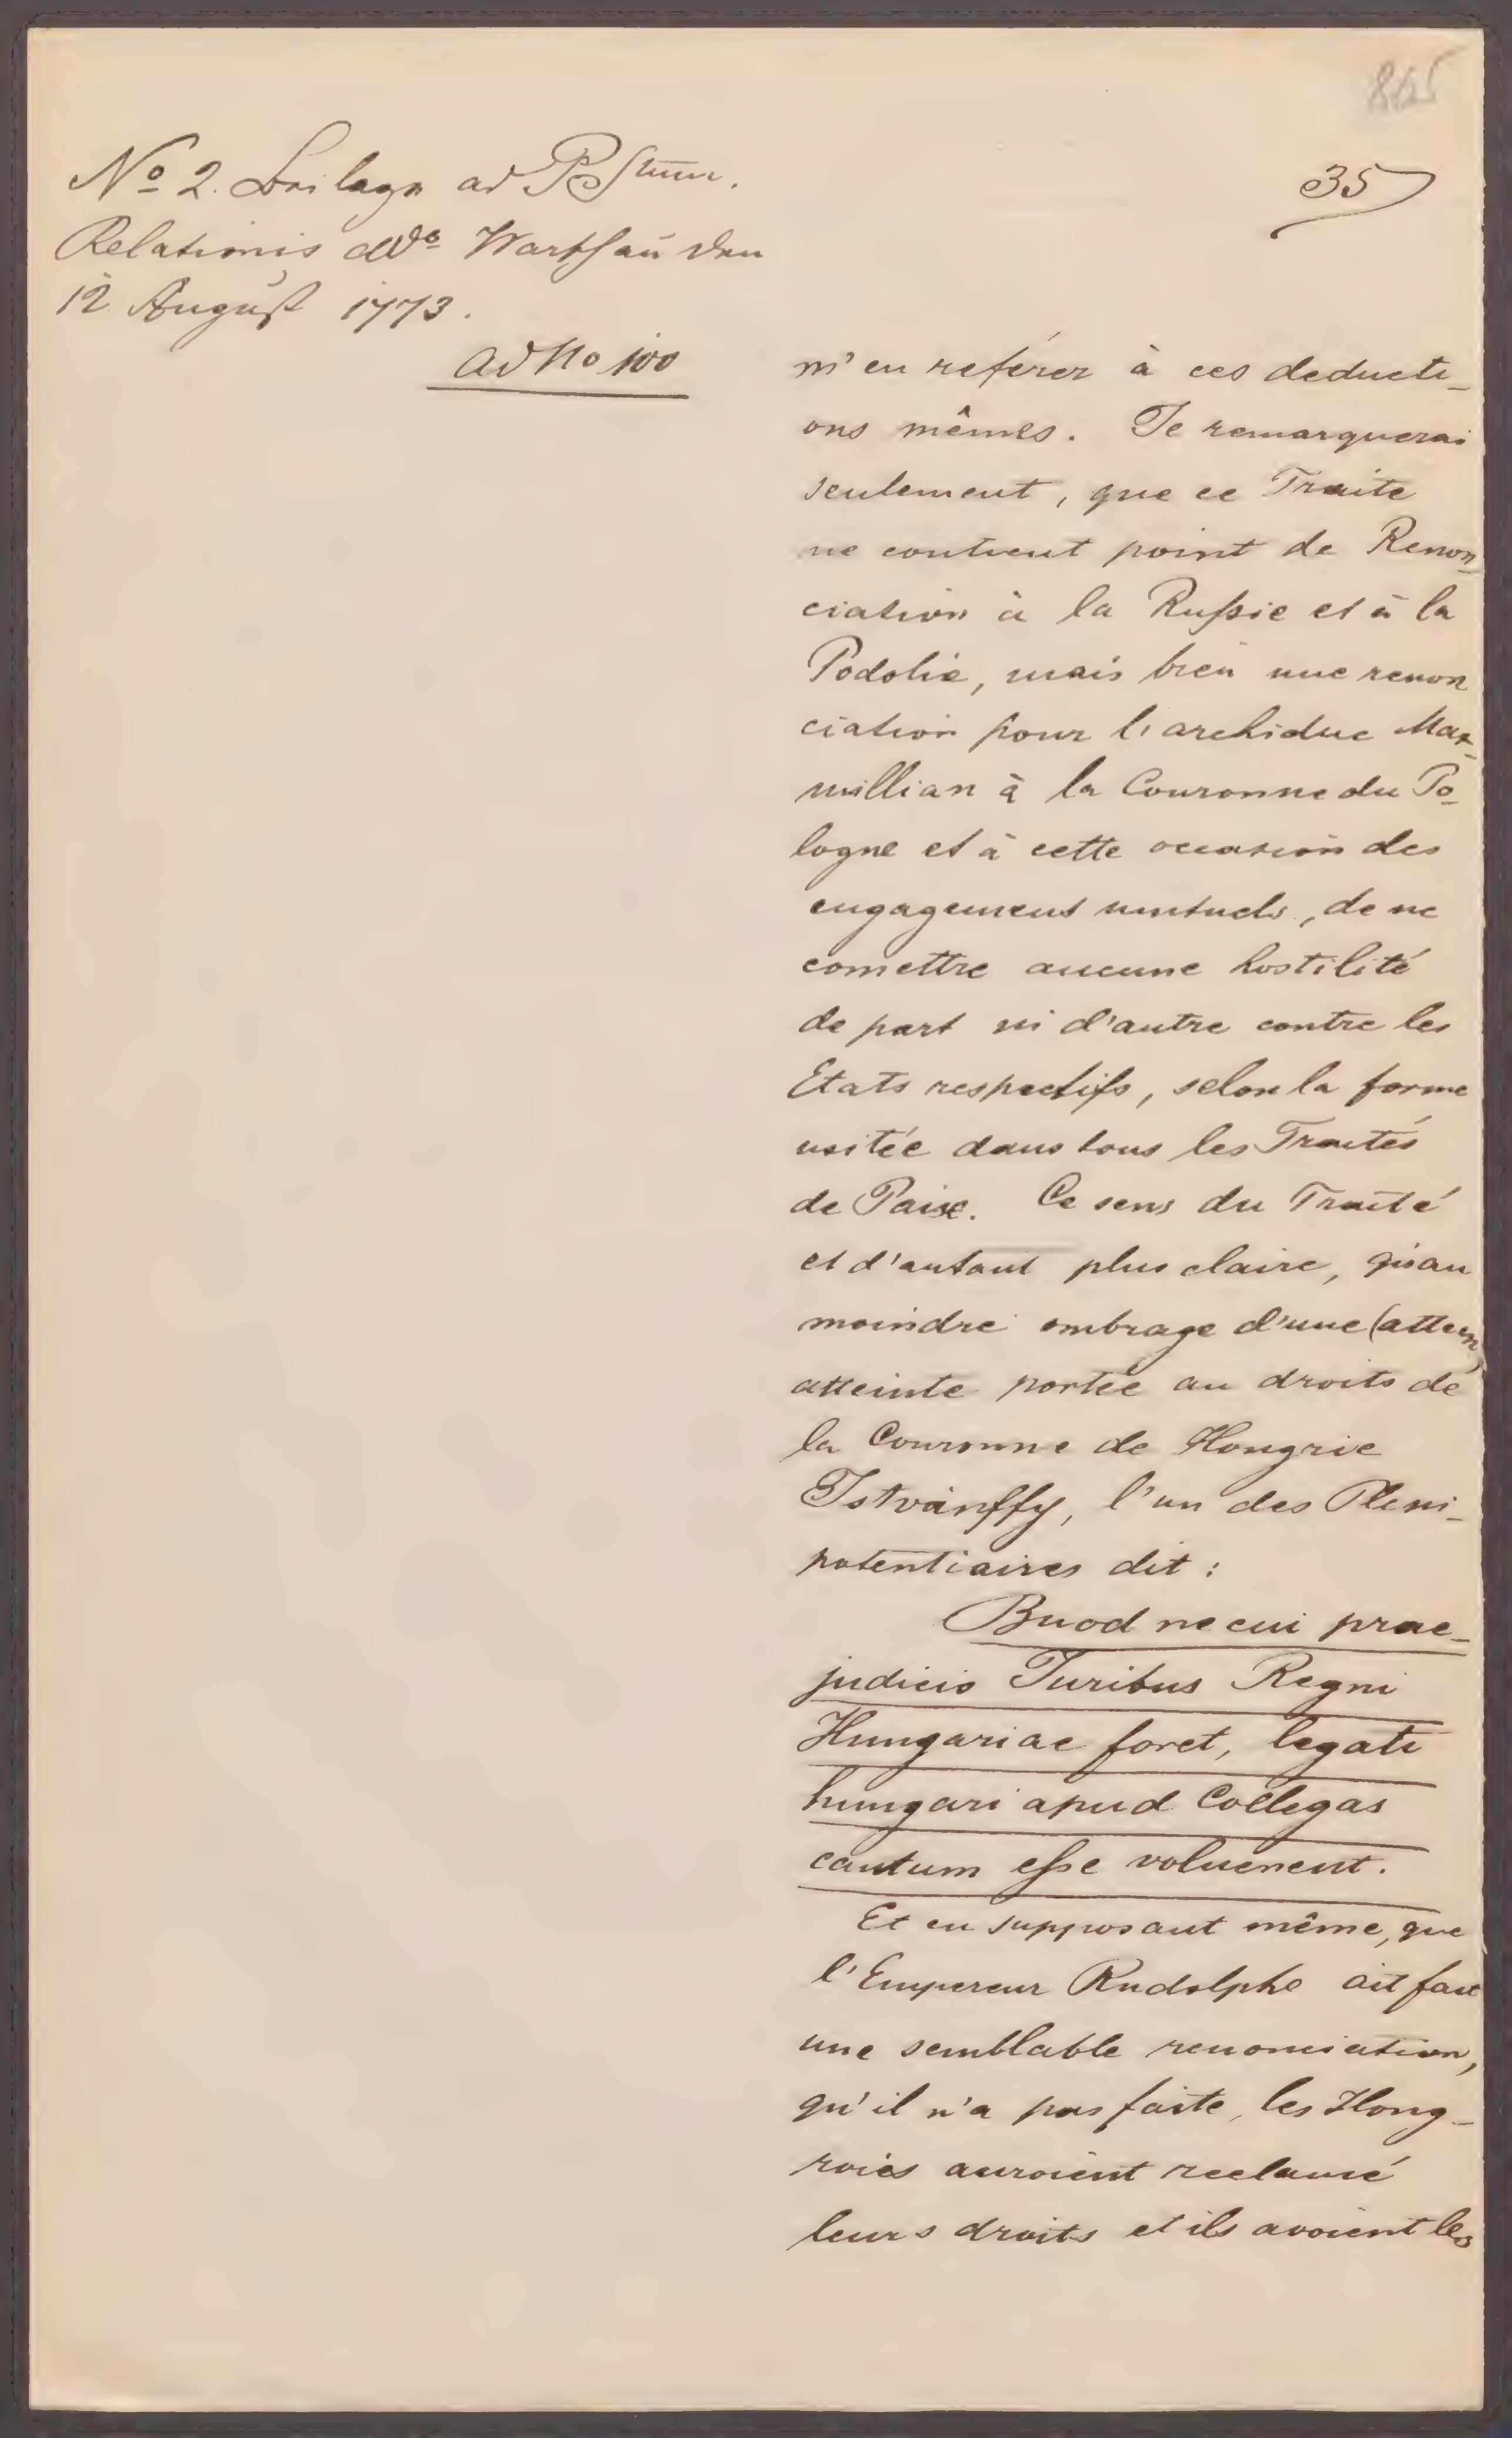 865
35
No 2. Beilage ad PStum.
Relationis ddo Warschau den
12 August 1773.
ad No 100
m'en referer à ces deducti-
ons mêmes. Je remarquerai
seulement, que ce Traite
ne contient point de Renon-
ciation à la Russie et à la
Podolie, mais bien une renon
ciation pour l'archiduc Max-
millian à la Couronne du Po-
logne et à cette occasion des
engagement mutuels, de ne
comettre aucune hostilité
de part ni d'autre contre les
Etats respectifs, selon la forme
usitée dans tous les Traités
de Paix. Ce sens du Traité
et d'autant plus claire, qu'au
moindre ombrage d'une (attein)
atteinte portée au droits de
la Couronne de Hongrie
Istvánffy, l'un des Pleni-
potentiaires dit:
Quod ne cui prae-
judicio Juribus Regni
Hungariae foret, legati
hungari apud Collegas
cautum esse voluerent.
Et en supposant même, que
l'Empereur Rudolphe ait fait
une semblable renonciation,
qu'il n'a pas faite, les Hong-
rois auroient reclamé
leurs droits et ils avoient les